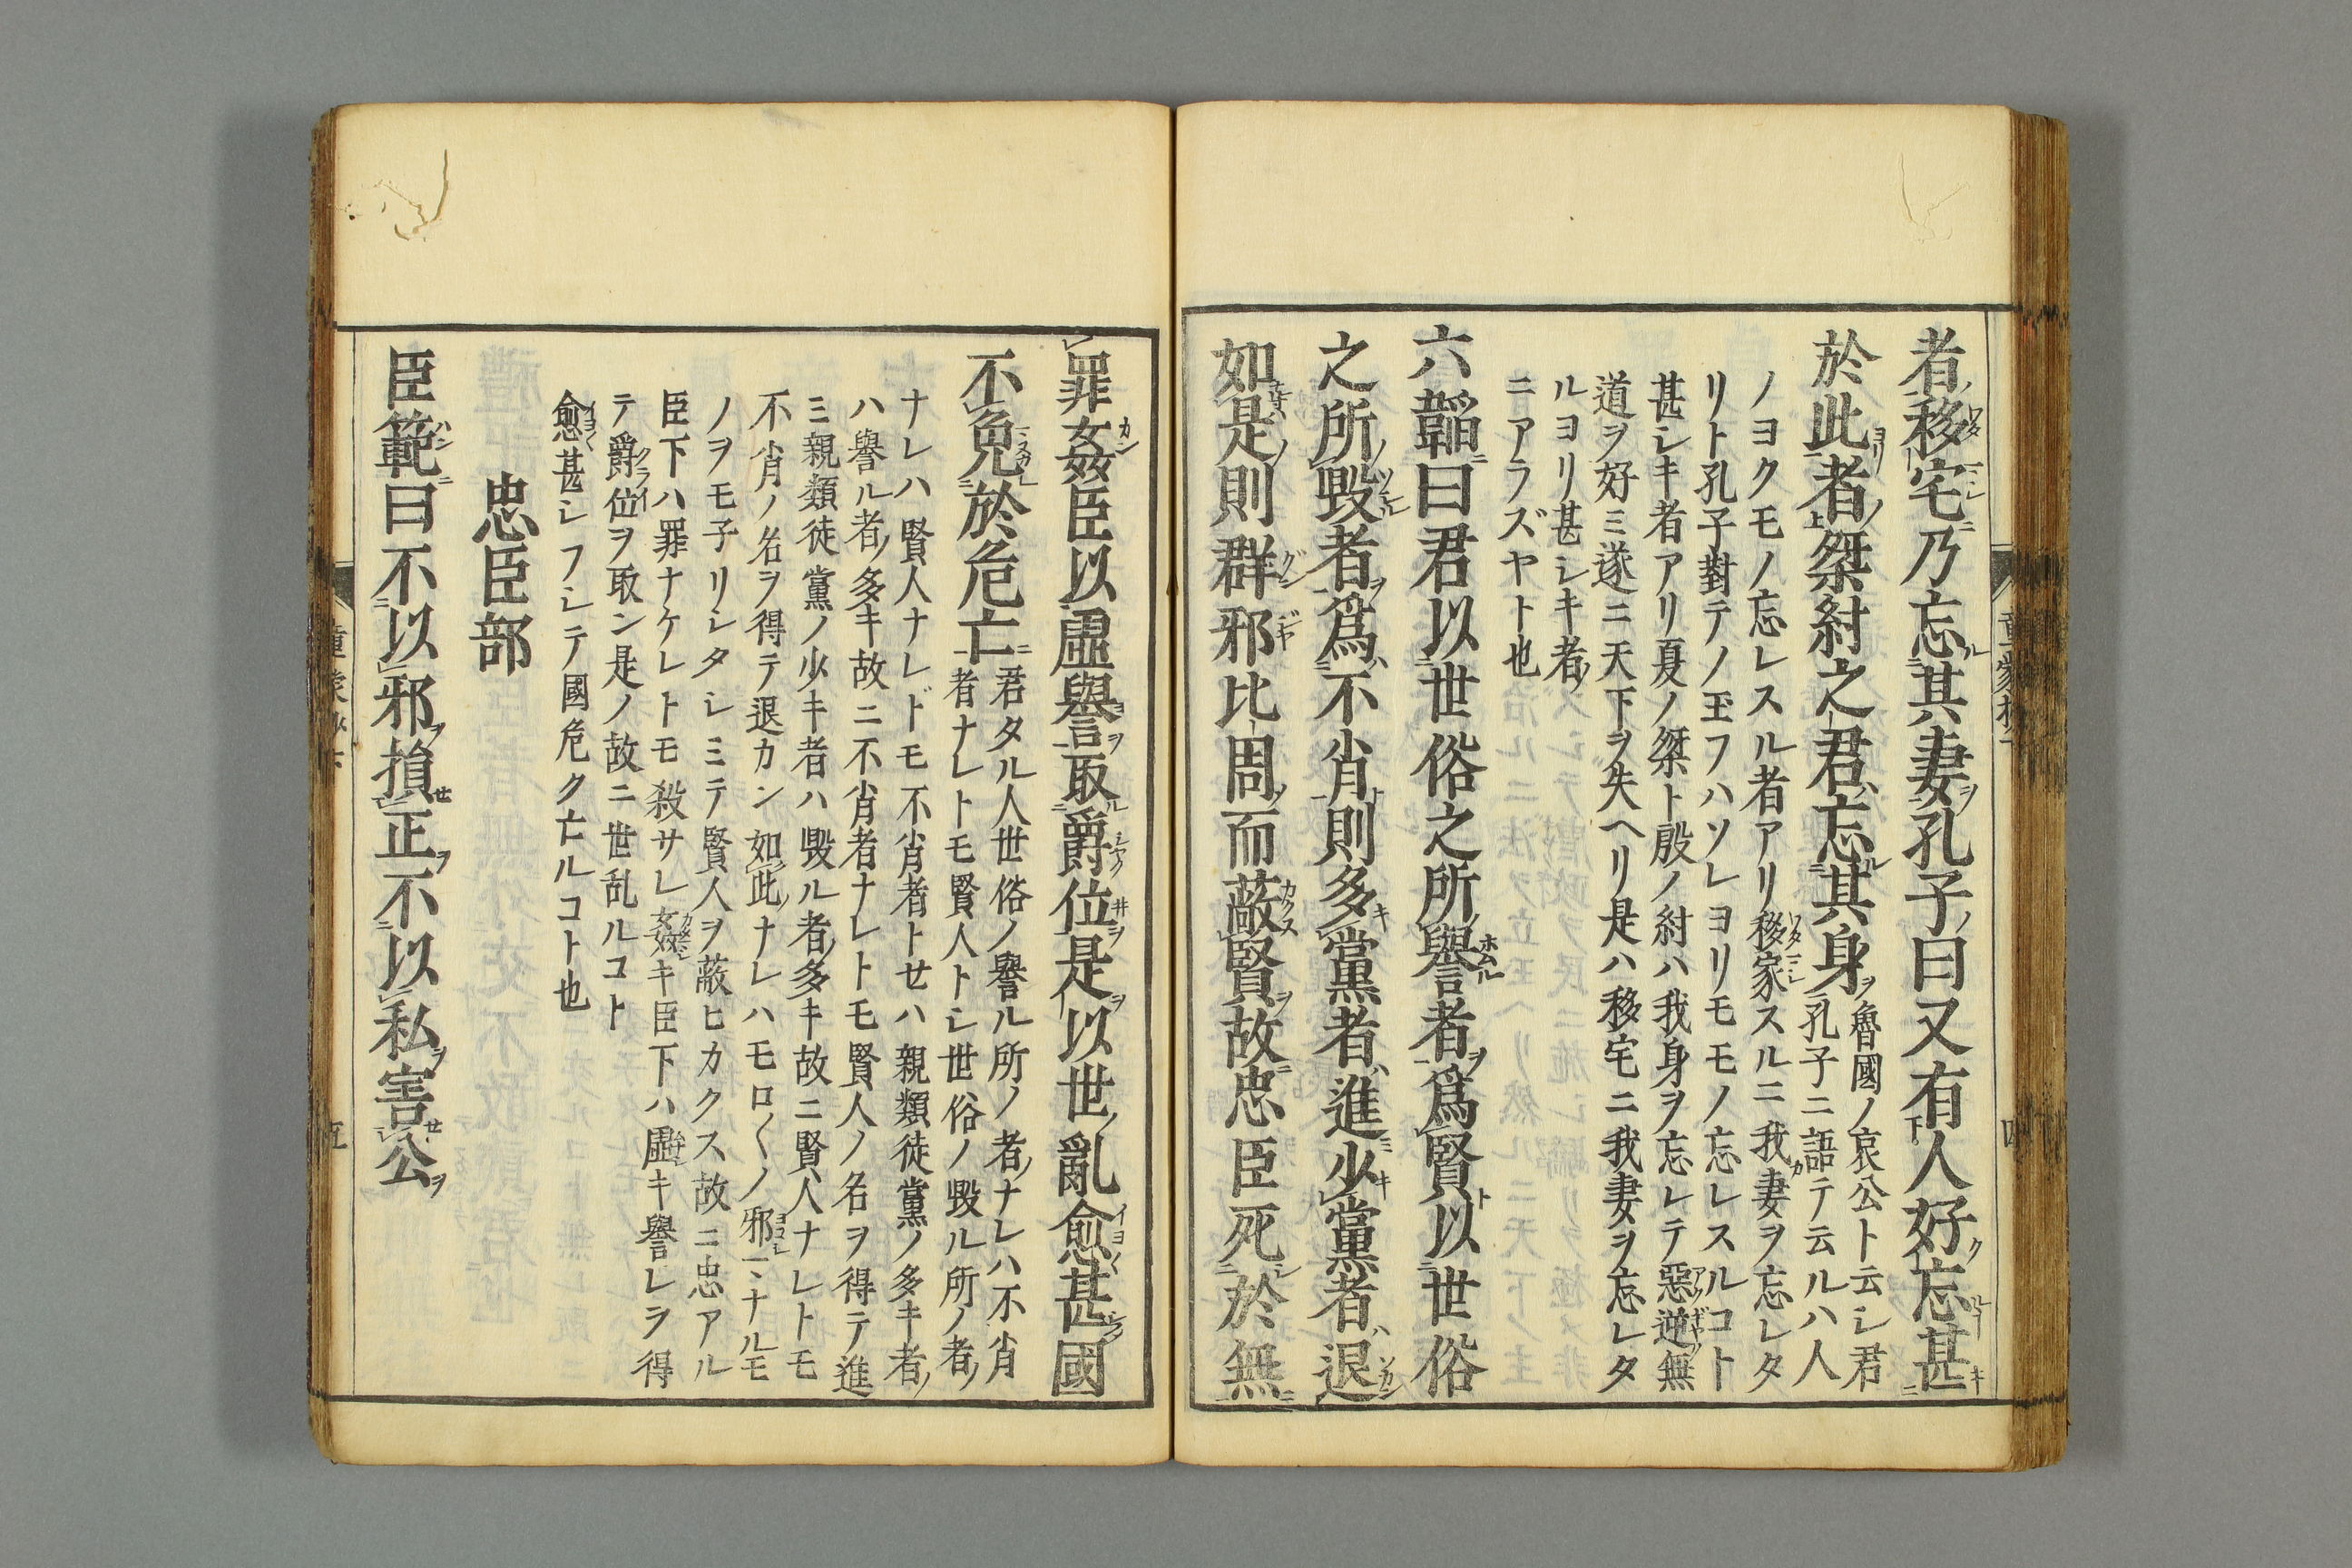 者移宅乃忘其妻孔子曰又有人好忘甚
於此者桀紂之君忘其身魯國ノ哀公ト云シ君
孔子ニ語テ云ルハ人
ノヨクモノ忘レスル者アリ移家スルニ我妻ヲ忘レタ
リト孔子對テノ玉フハソレヨリモモノ忘レスルコト
甚シキ者アリ夏ノ桀ト殷ノ紂ハ我身ヲ忘レテ惡逆無
道ヲ好ミ遂ニ天下ヲ失ヘリ是ハ移宅ニ我妻ヲ忘レタ
ルヨリ甚シキ者
ニアラズヤト也
六韜曰君以世俗之所譽者爲賢以世俗
之所毀者爲不肖則多黨者進少黨者退
如是則群邪比周而蔽賢故忠臣死於無
罪姦臣以虛譽取爵位是以世亂愈甚國
不免於危亡君タル人世俗ノ譽ル所ノ者ナレハ不肖
者ナレトモ賢人トシ世俗ノ毀ル所ノ者
ナレハ賢人ナレドモ不肖者トセハ親類徒黨ノ多キ者
ハ譽ル者多キ故ニ不肖者ナレトモ賢人ノ名ヲ得テ進
ミ親類徒黨ノ少キ者ハ毀ル者多キ故ニ賢人ナレトモ
不肖ノ名ヲ得テ退カン如此ナレハモロ〱ノ邪ニナルモ
ノヲモ子リシタシミテ賢人ヲ蔽ヒカクス故ニ忠アル
臣下ハ罪ナケレトモ殺サレ姦キ臣下ハ虛キ譽レヲ得
テ爵位ヲ取ン是ノ故ニ世乱ルコト
愈甚シフシテ國危ク亡ルコト也
忠臣部
臣範曰不以邪損正不以私害公